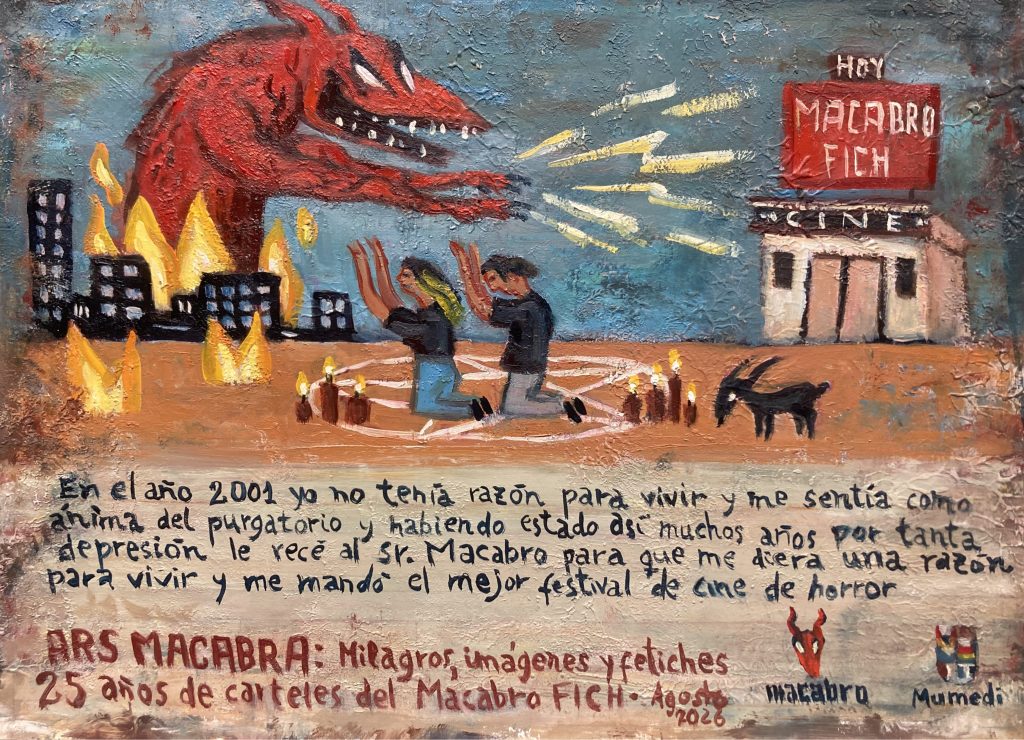 HOY
MACABRO
FICH
CINE
En el año 2001 yo no tenía razón para vivir y me sentía como
ánima del purgatorio y habiendo estado así muchos años por tanta
depresión le recé al Sr. Macabro para que me diera una razón
para vivir y me mandó el mejor festival de cine de horror
ARS MACABRA: Milagros, imágenes y fetiches
25 años de carteles del Macabro FICH · Agosto
2026
macabro
Mumedi